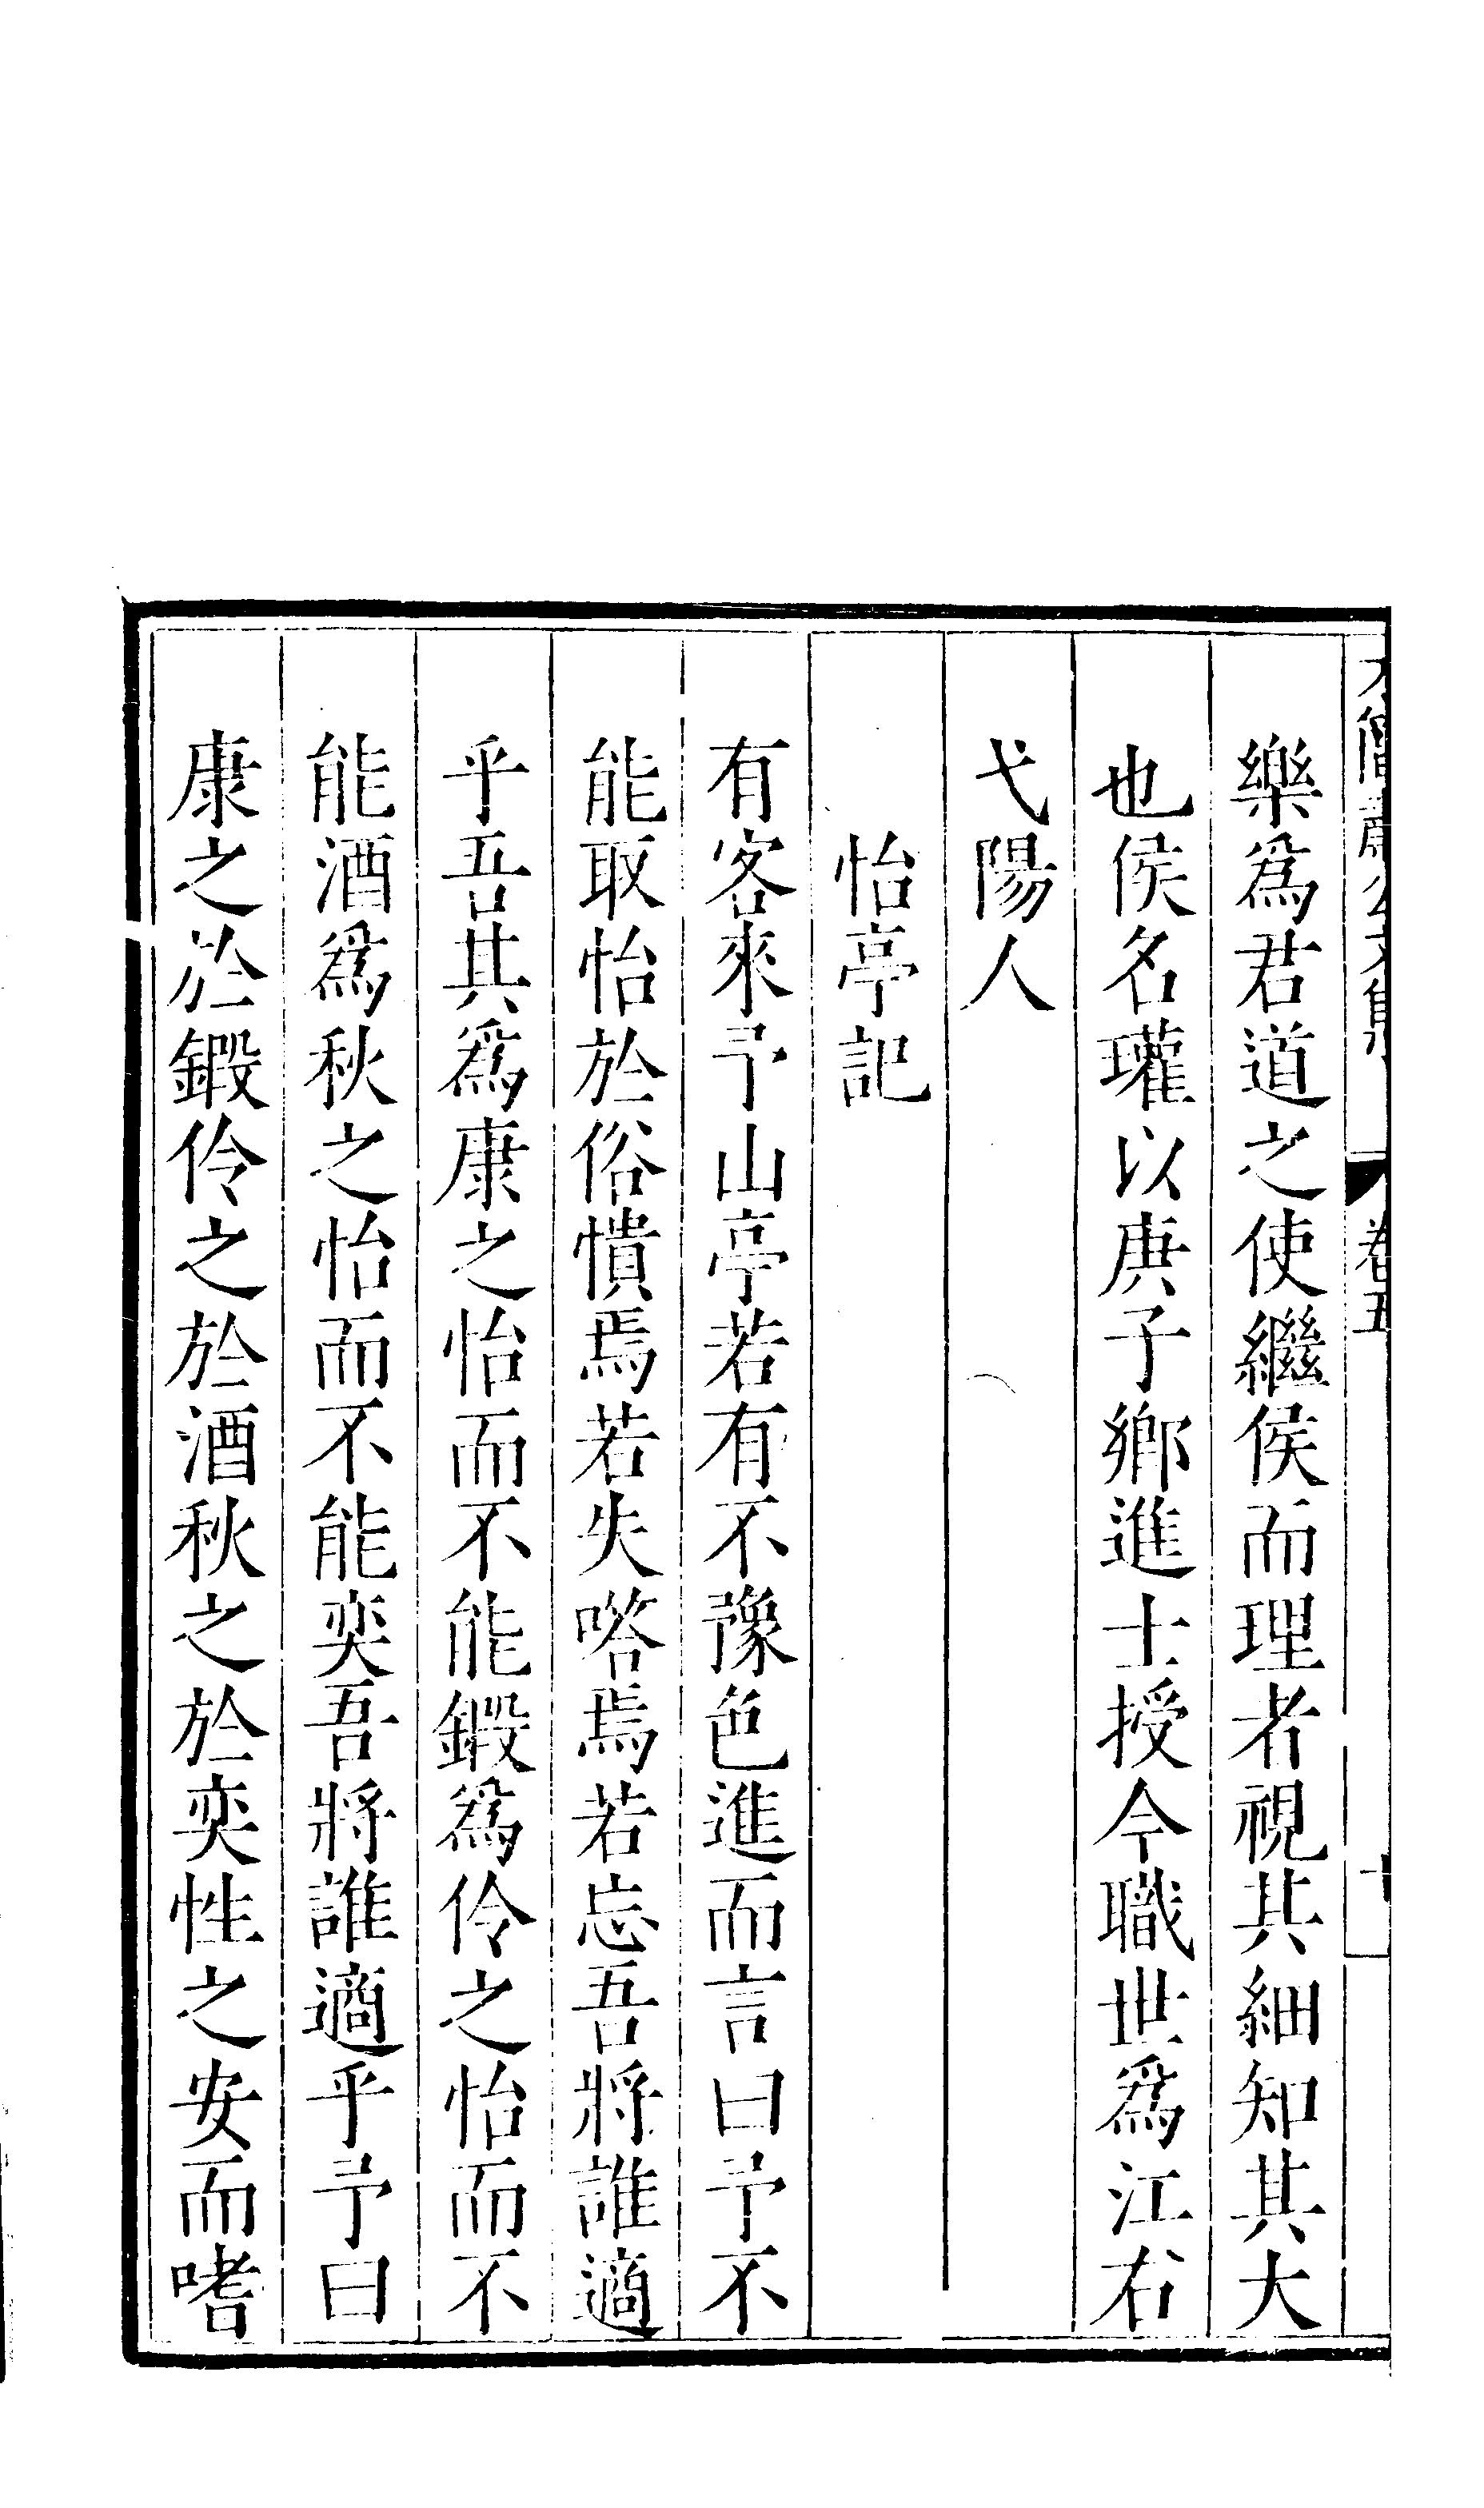 樂爲君道之使繼侯而理者視其細知其大
也侯名瓘以庚子鄉進士授今職世爲江右
弋陽人
怡亭記
有客來予山亭若有不豫色進而言曰予不
能取怡於俗憒焉若失嗒焉若忘吾將誰適
乎吾其爲康之怡而不能鍛爲伶之怡而不
能酒爲秋之怡而不能奕吾將誰適乎予曰
康之於鍛伶之於酒秋之於奕性之安而嗜
卷五